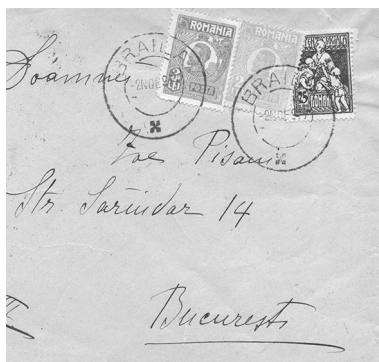 ROMANIA ROMANIA
BRAILA BRAILA
2NOE
POSTA
25 ROMANIA
Doamnei
Zoe Pisani
Str. Sarindar 14
Bucuresti